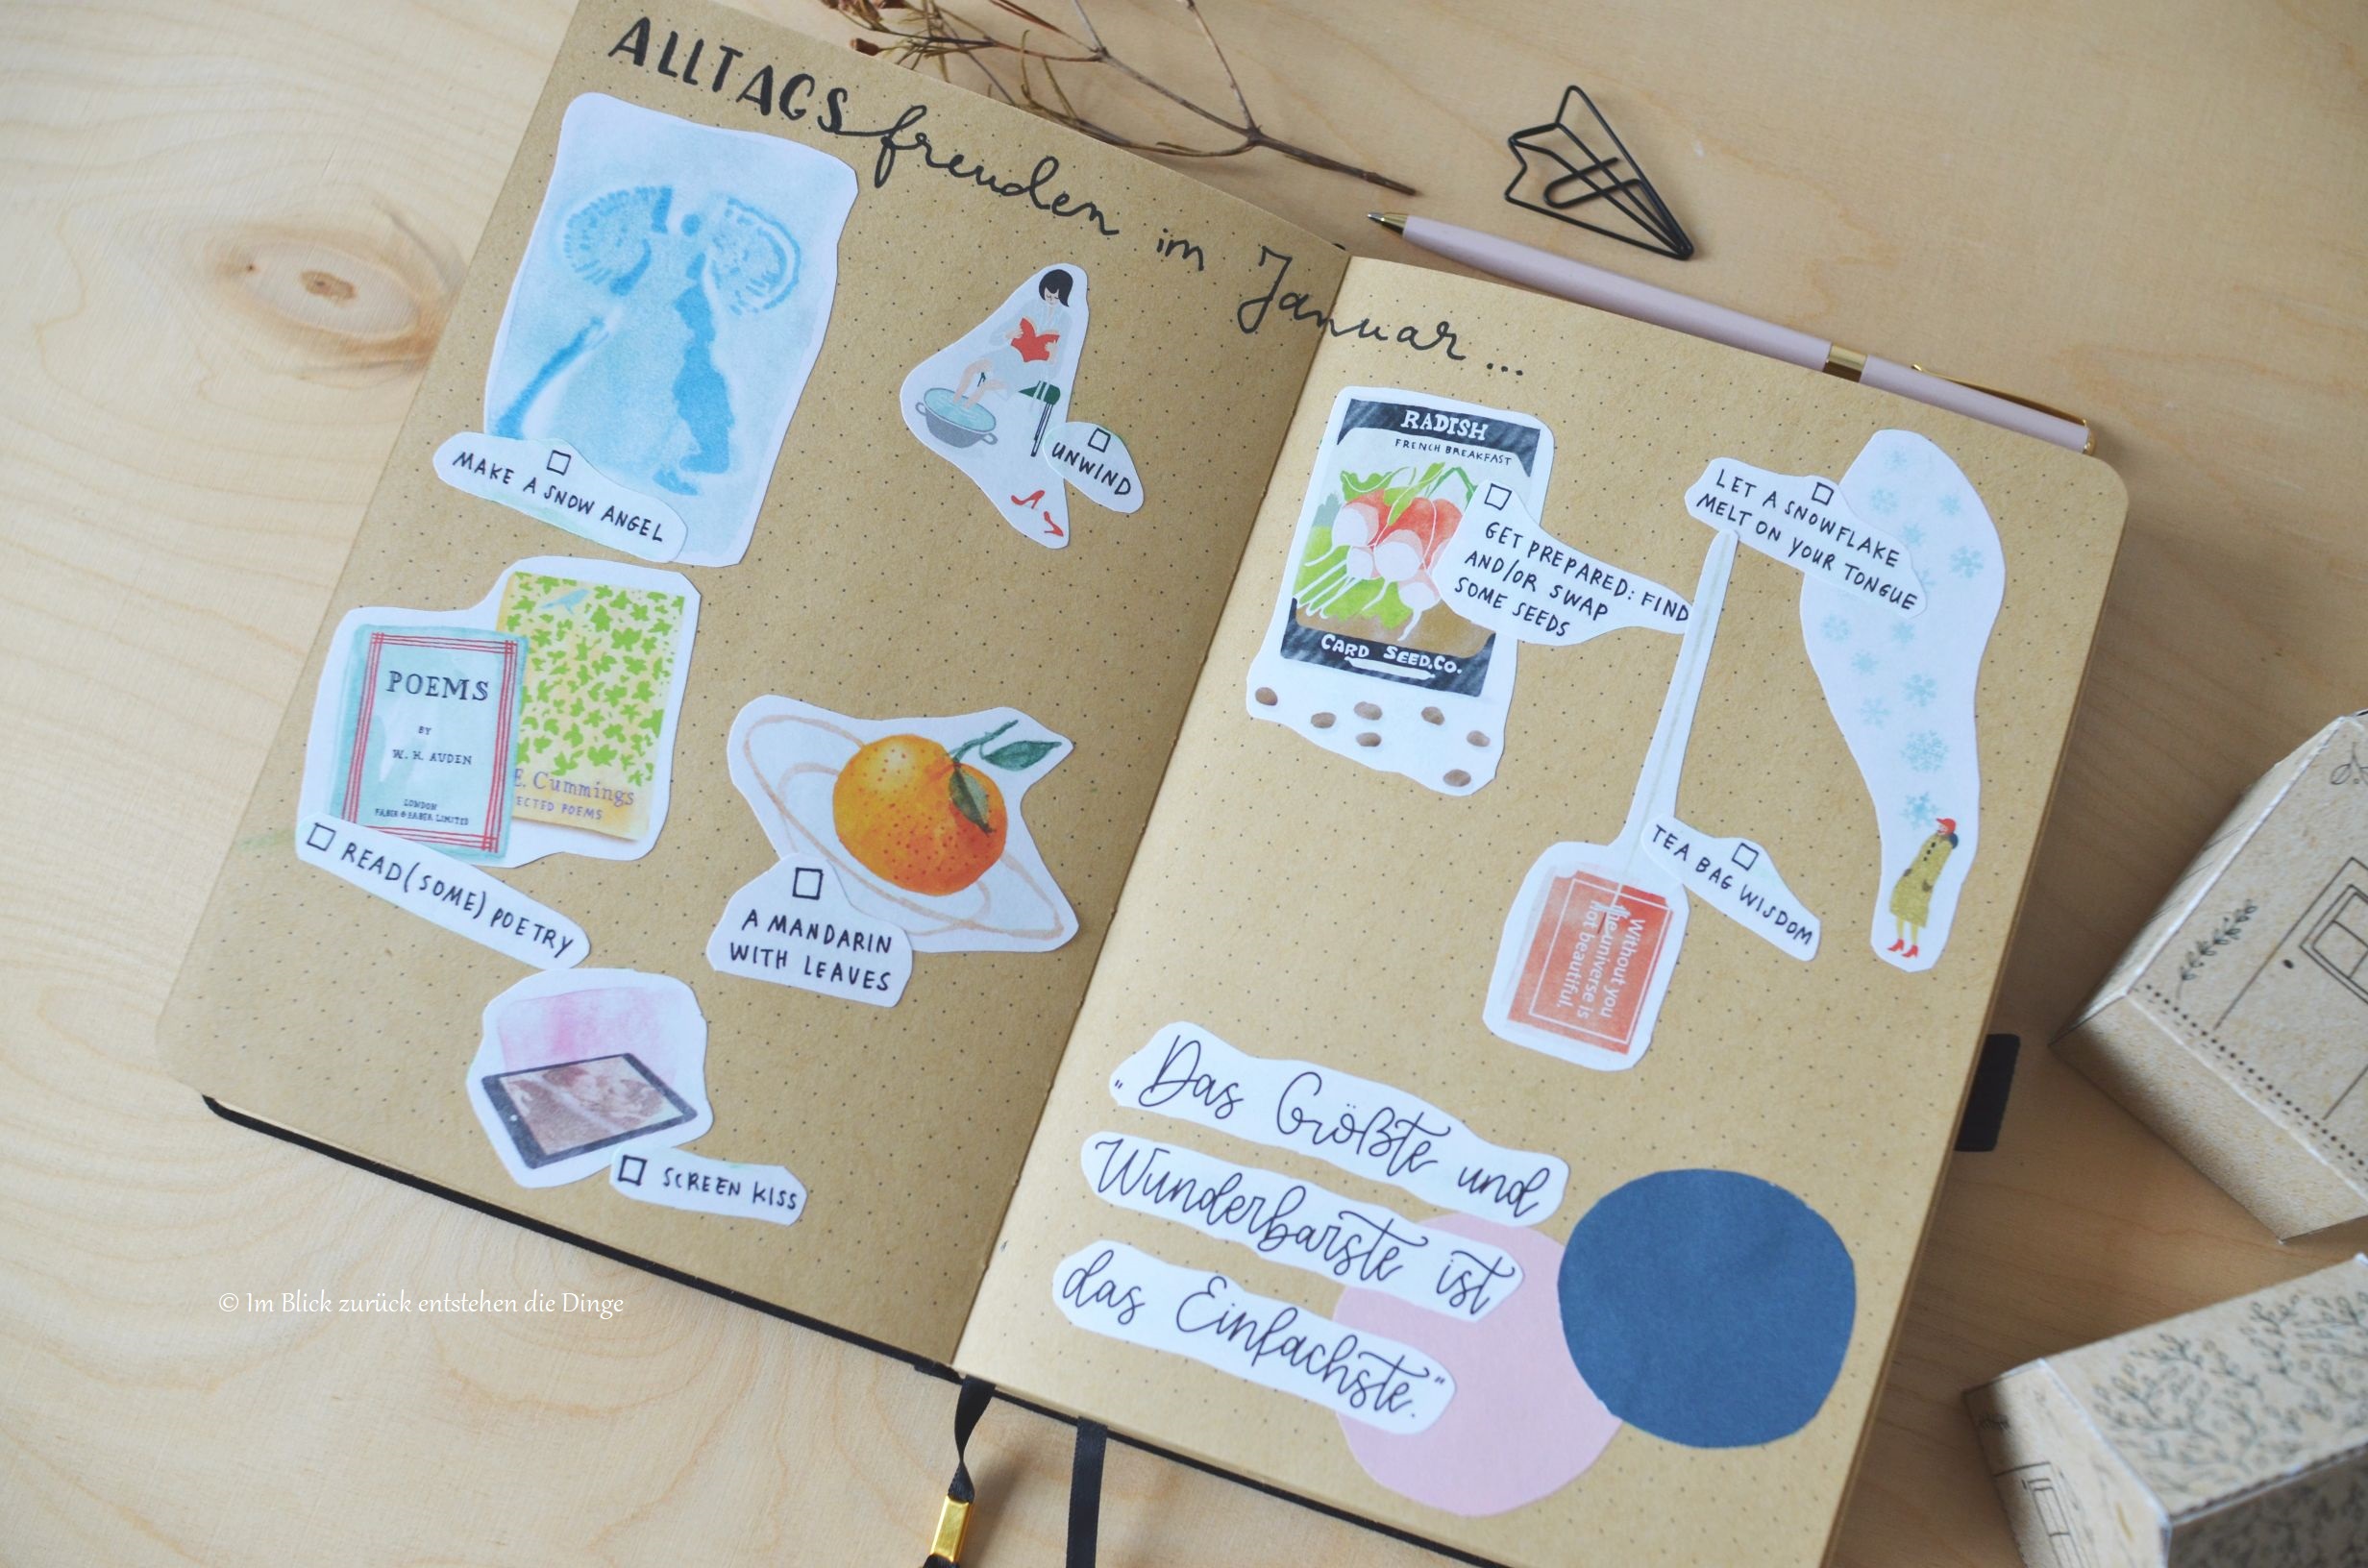 ALLTAGSfreuden im Januar ...
MAKE A SNOW ANGEL
UNWIND
POEMS
BY
W. H. AUDEN
LONDON
FABER & FABER LIMITED
E. Cummings
ECTED POEMS
READ (SOME) POETRY
A MANDARIN
WITH LEAVES
SCREEN KISS
RADISH
FRENCH BREAKFAST
CARD SEED.CO.
GET PREPARED: FIND
AND/OR SWAP
SOME SEEDS
LET A SNOWFLAKE
MELT ON YOUR TONGUE
TEA BAG WISDOM
Without you
the universe is
not beautiful.
„Das Größte und
Wunderbarste ist
das Einfachste."
© Im Blick zurück entstehen die Dinge